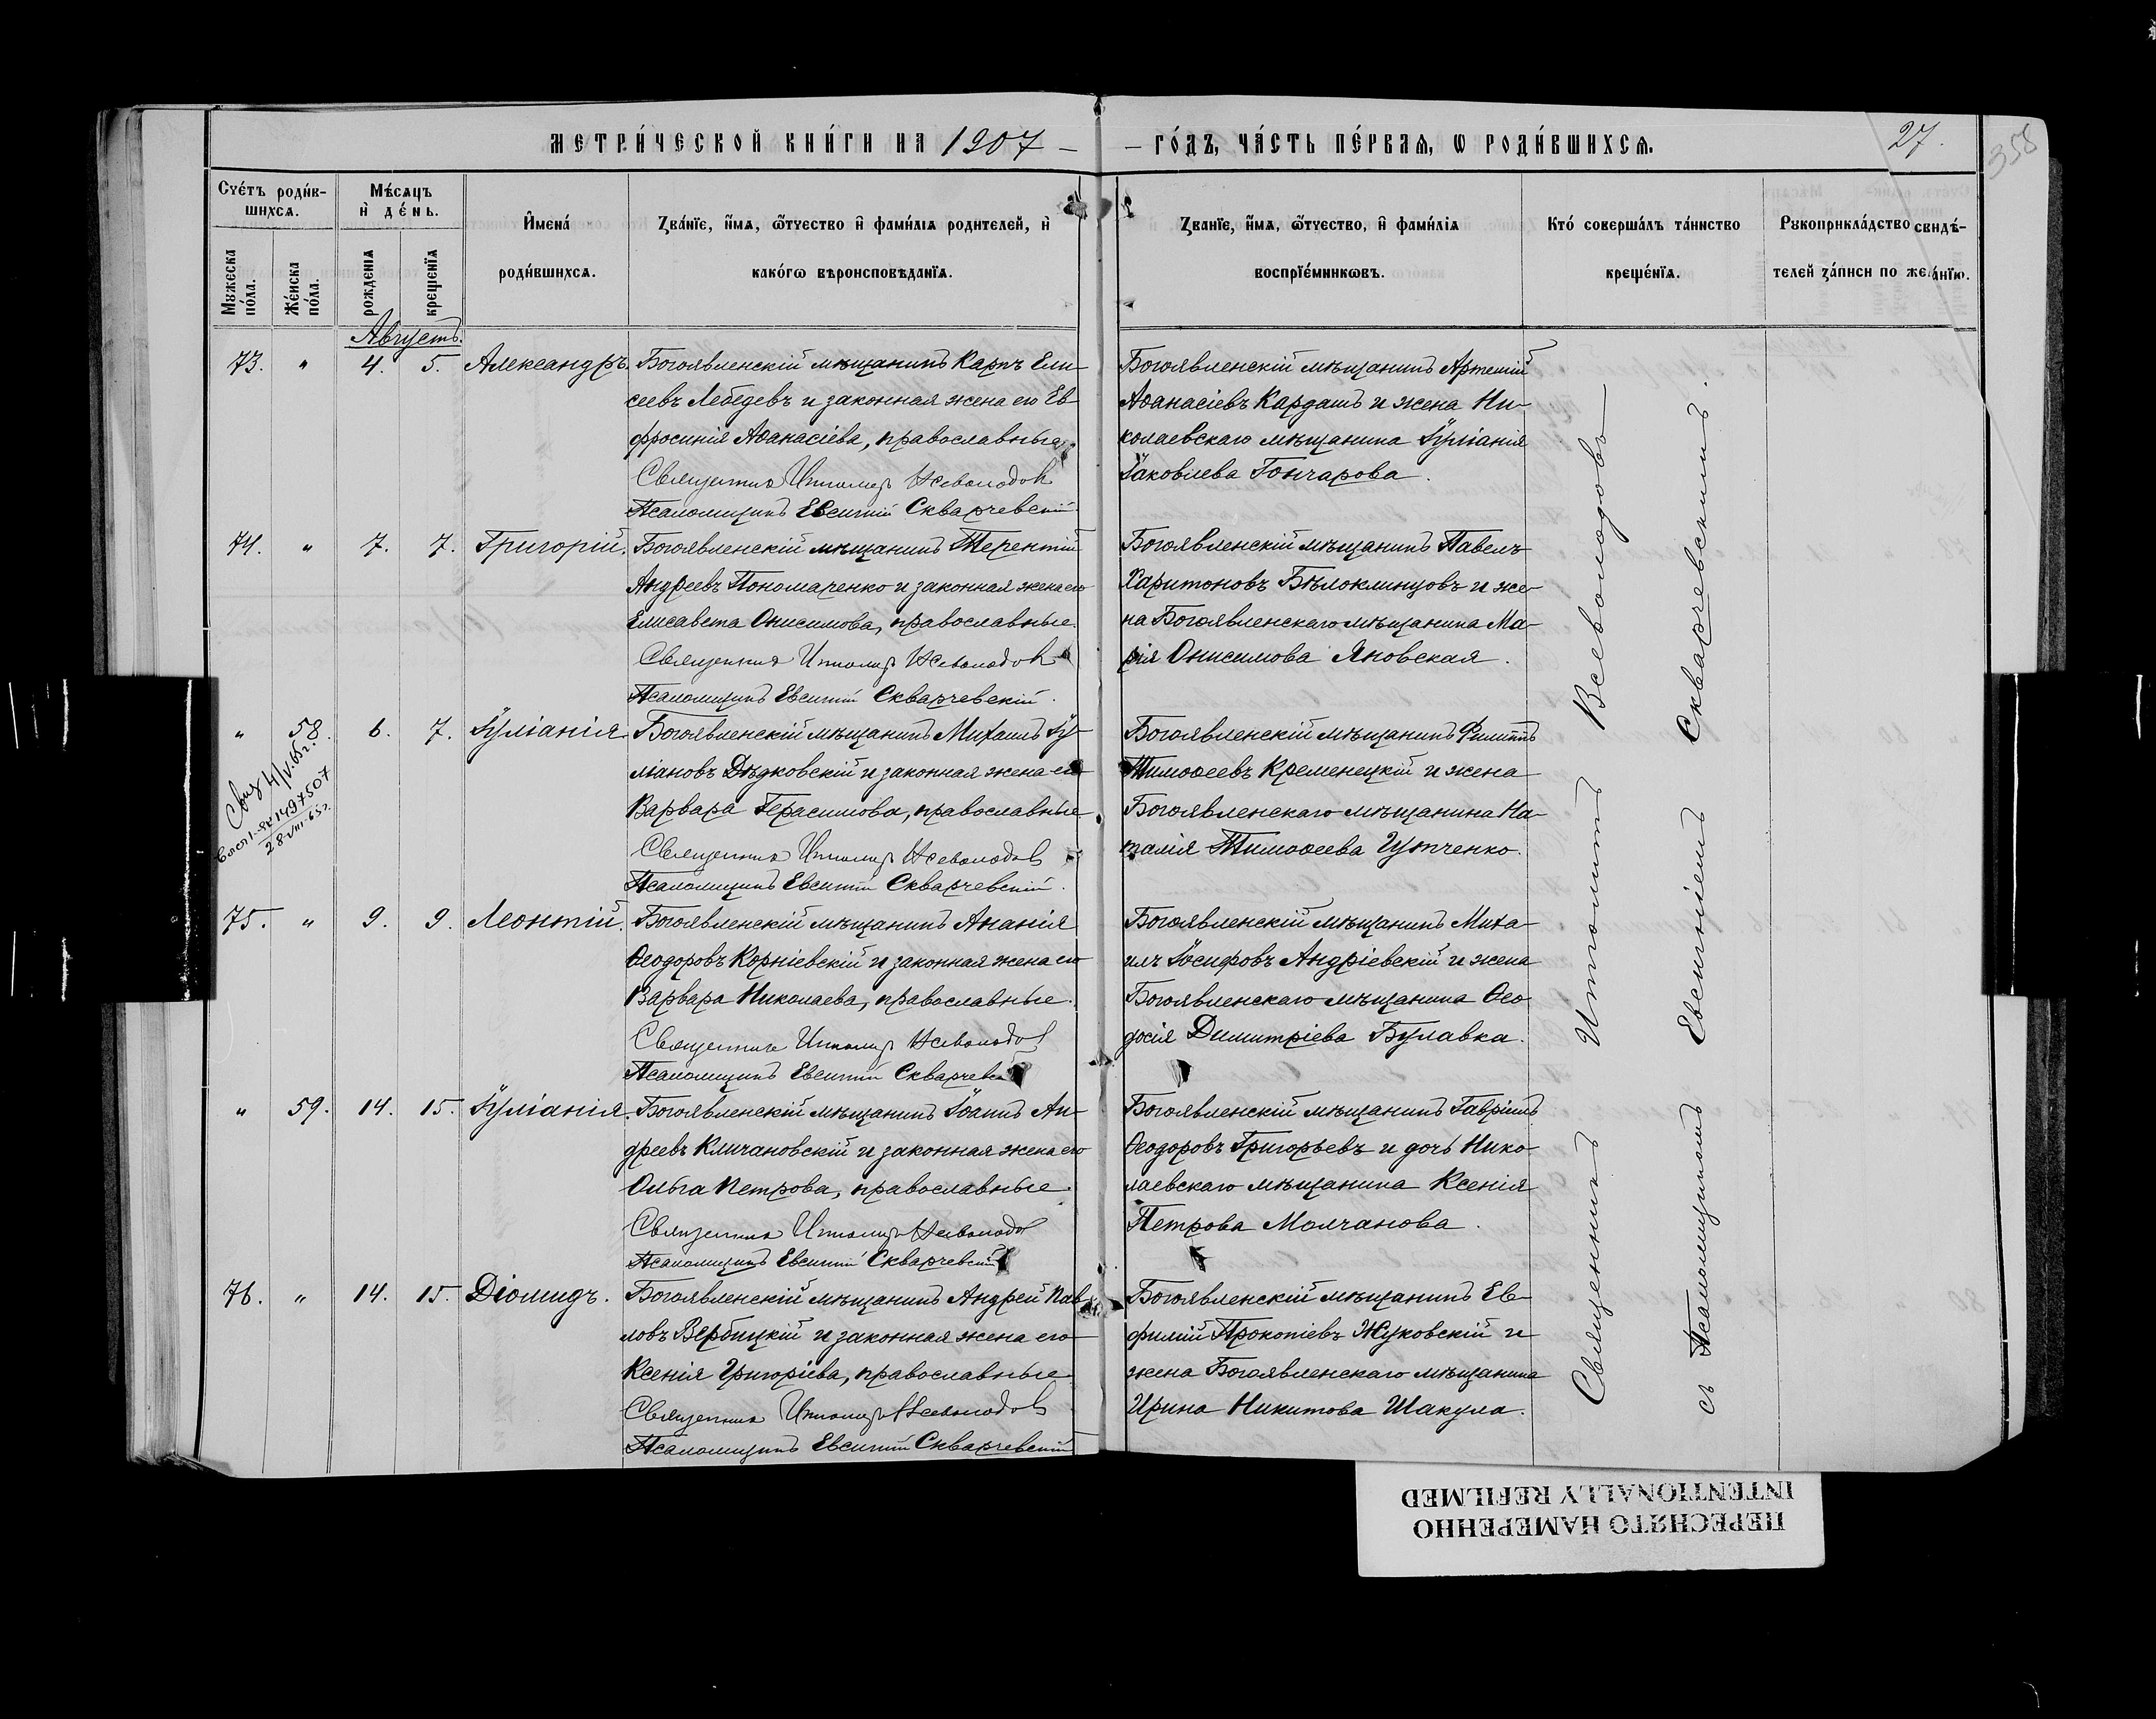 МЕТРИ́ЧЕСКОЙ КНИ́ГИ НА 1907 — — ГО́ДЪ, ЧА́СТЬ ПЕ́РВАѦ, Ѡ РОДИ́ВШИХСѦ. 27.
358
Счéтъ роди́в-
шихсѧ.
Мꙋжеска пóла.
Жéнска пóла.
Мѣ́сѧцъ
и҆ де́нь.
рожденїѧ
крещенїѧ
И҆мена́
роди́вшихсѧ.
Зва́нїе, и҆́мѧ, ѻ҆́тчество и҆ фами́лїѧ родителей, и҆
како́гѡ вѣроисповѣданїѧ.
Зва́нїе, и҆́мѧ, ѻ҆́тчество, и҆ фами́лїѧ
воспрїе́мникѡвъ.
Кто́ соверша́лъ та́инство
креще́нїѧ.
Рꙋкоприкла́дство свидѣ́-
телей за́писи по жела́нїю.
Августъ.
73. „ 4. 5. Александръ.
Богоявленскій мѣщанинъ Карпъ Ели-
сеевъ Лебедевъ и законная жена его Ев-
фросинія Аѳанасіева, православные
Священникъ Ипполитъ Всеволодовъ
Псаломщикъ Евсигній Скварчевскій
Богоявленскій мѣщанинъ Артемій
Аѳанасіевъ Кардашъ и жена Ни-
колаевскаго мѣщанина Іуліанія
Іаковлева Гончарова.
74. „ 7. 7. Григорій.
Богоявленскій мѣщанинъ Терентій
Андреевъ Пономаренко и законная жена его
Елисавета Онисимова, православные.
Священникъ Ипполитъ Всеволодовъ
Псаломщикъ Евсигній Скварчевскій.
Богоявленскій мѣщанинъ Павелъ
Харитоновъ Бѣлоклинцовъ и же-
на Богоявленскаго мѣщанина Ма-
рія Онисимова Яновская.
„ 58. 6. 7. Іуліанія
1497507
28-VIII-65г.
Богоявленскій мѣщанинъ Михаилъ Іу-
ліановъ Дѣдковскій и законная жена его
Варвара Герасимова, православные
Священникъ Ипполитъ Всеволодовъ
Псаломщикъ Евсигній Скварчевскій.
Богоявленскій мѣщанинъ Филиппъ
Тимоѳеевъ Кременецкій и жена
Богоявленскаго мѣщанина На-
талія Тимоѳеева Цупченко.
75. „ 9. 9. Леонтій.
Богоявленскій мѣщанинъ Ананія
Ѳеодоровъ Корніевскій и законная жена его
Варвара Николаева, православные.
Священникъ Ипполитъ Всеволодовъ
Псаломщикъ Евсигній Скварчевскій
Богоявленскій мѣщанинъ Миха-
илъ Іосифовъ Андріевскій и жена
Богоявленскаго мѣщанина Ѳео
досія Димитріева Булавка.
„ 59. 14. 15. Іуліанія.
Богоявленскій мѣщанинъ Іоаннъ Ан-
дреевъ Кличановскій и законная жена его
Ольга Петрова, православные.
Священникъ Ипполитъ Всеволодовъ
Псаломщикъ Евсигній Скварчевскій
Богоявленскій мѣщанинъ Гавріилъ
Ѳеодоровъ Григорьевъ и дочь Нико-
лаевскаго мѣщанина Ксенія
Петрова Молчанова.
76. „ 14. 15. Діомидъ.
Богоявленскій мѣщанинъ Андрей Пав-
ловъ Вербицкій и законная жена его
Ксенія Григоріева, православные.
Священникъ Ипполитъ Всеволодовъ
Псаломщикъ Евсигній Скварчевскій
Богоявленскій мѣщанинъ Ев-
фимій Прокопіевъ Жуковскій и
жена Богоявленскаго мѣщанина
Ирина Никитова Шакула.
Священникъ Ипполитъ Всеволодовъ
съ Псаломщикомъ Евсигніемъ Скварчевскимъ.
ПЕРЕСНЯТО НАМЕРЕННО
INTENTIONALLY REFILMED